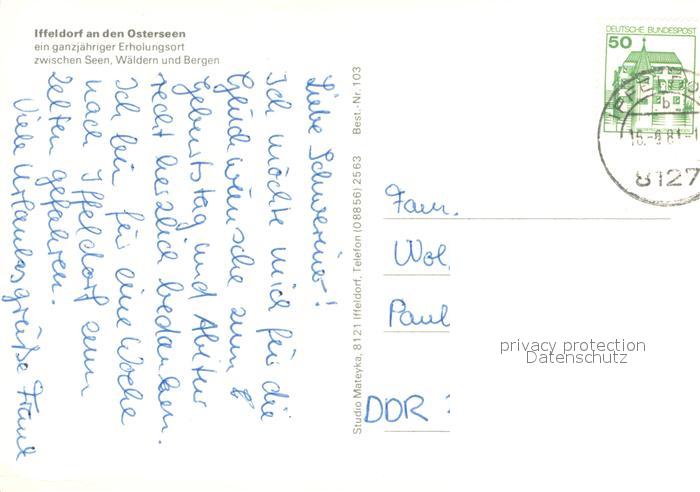 Iffeldorf an den Osterseen
ein ganzjähriger Erholungsort
zwischen Seen, Wäldern und Bergen
Liebe Schweriner!
Ich möchte mich für die
Glückwünsche zum
Geburtstag und Abitur
recht herzlich bedanken.
Ich bin für eine Woche
nach Iffeldorf zum
Zelten gefahren.
Viele Urlaubsgrüße Frank
Studio Mateyka, 8121 Iffeldorf, Telefon (08856) 2563 Best.-Nr. 103
DEUTSCHE BUNDESPOST
50
b
8127
Fam.
Wol
Paul
DDR
privacy protection
Datenschutz